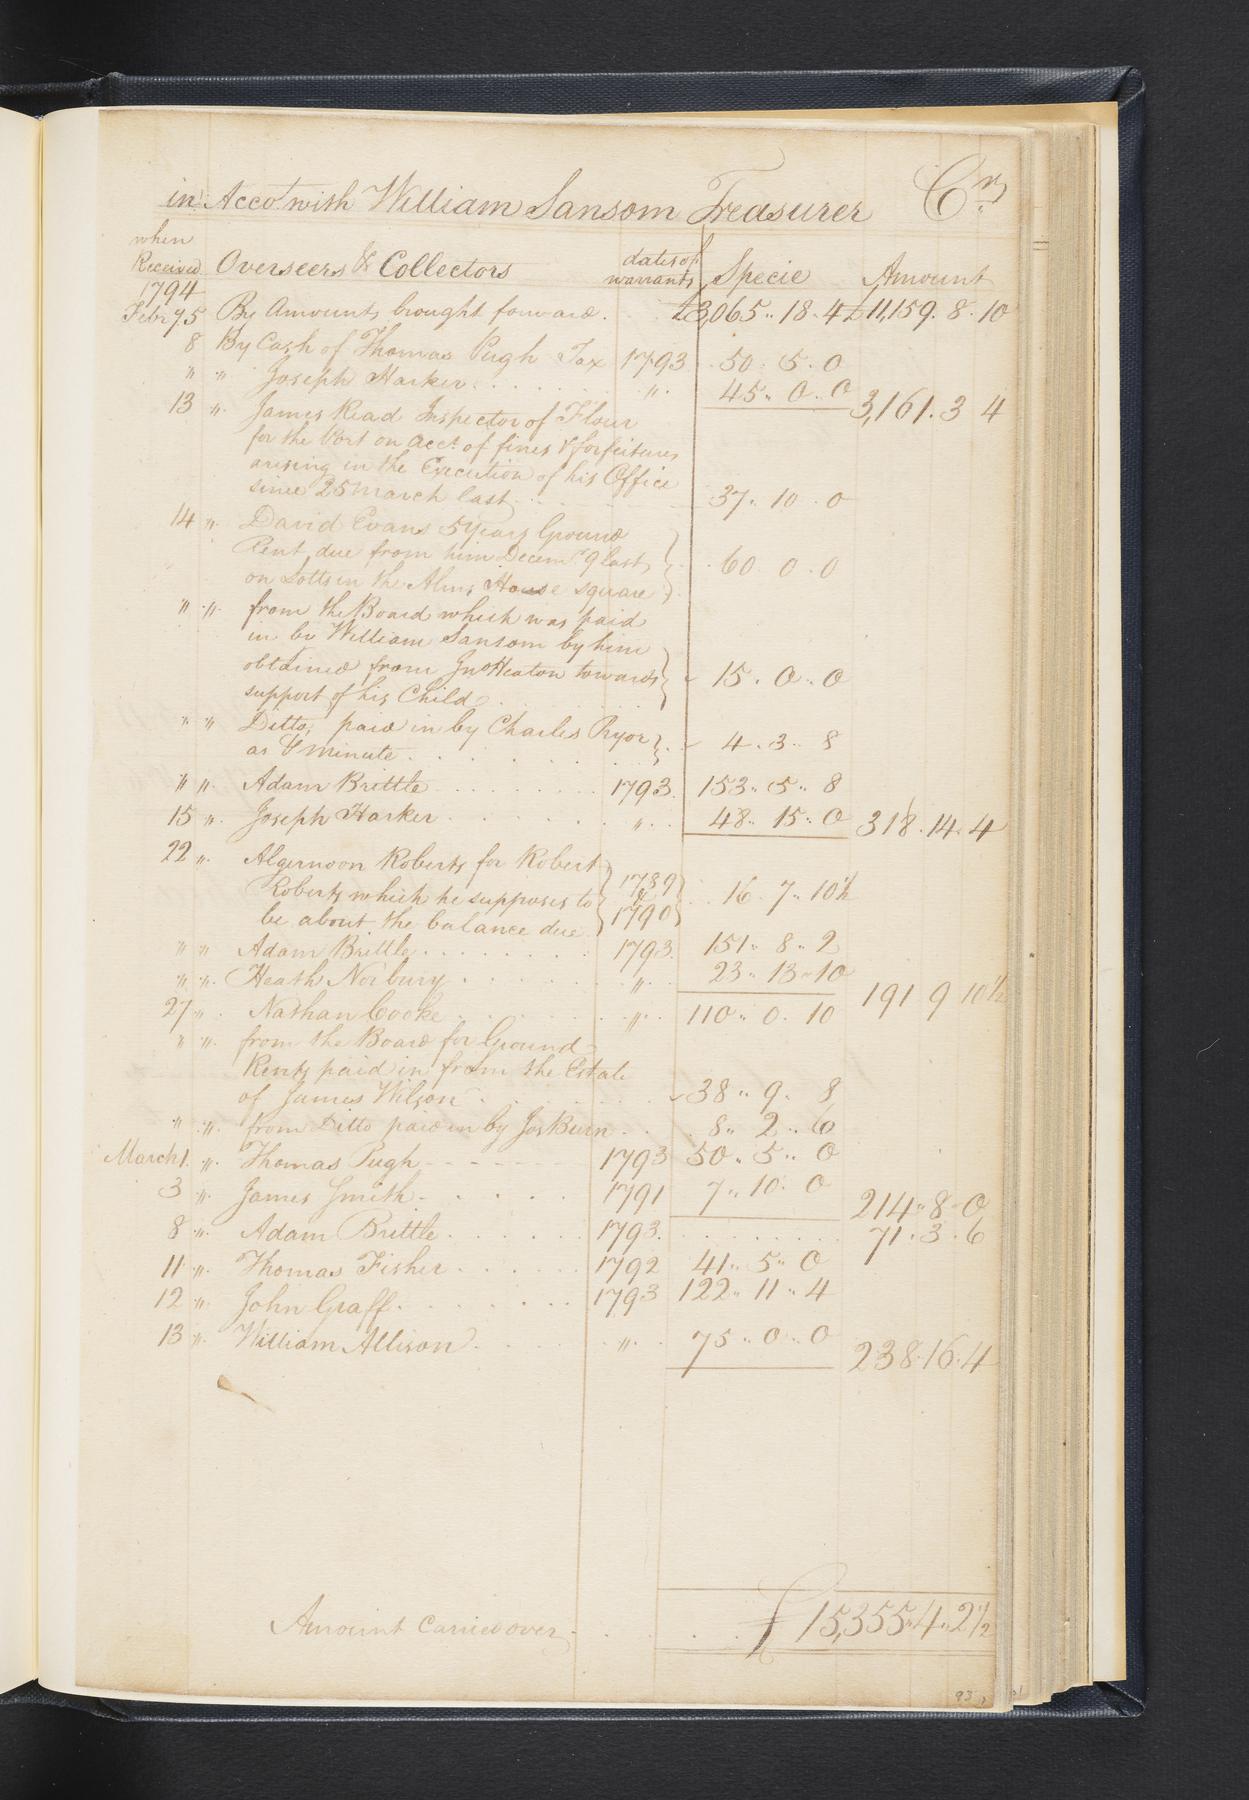 in Acco.t with William Sansom Treasurer Cr.
when
Received Overseers & Collectors dates of warrants Specie Amount
1794
Febry 5 By Amounts brought forward . £3,065 .. 18 . 4 £11,159 . 8 . 10
8 By Cash of Thomas Pugh Tax 1793 50 . 5 . 0
" " Joseph Harker . . . . . . " . 45 .. 0 .. 0 3,161 . 3 4
13 " James Read Inspector of Flour
for the Port on acct. of fines & forfeitures
arising in the Execution of his Office
since 25 March last . . . 37 .. 10 .. 0
14 " David Evans 5 years Ground
Rent, due from him Decemr. 9 last,
on Lotts in the Alms House square } . 60 . 0 . 0
" " from the Board which was paid
in by William Sansom by him
obtained from Jno Heaton towards
support of his Child . . . } 15 . 0 .. 0
" " Ditto, paid in by Charles Pryor
as ⅌ minute . . . . . } 4 . 3 .. 8
" " Adam Brittle . . . . . . . 1793. 153 .. 5 .. 8
15 " Joseph Harker . . . . . . " . . 48 .. 15 .. 0 318 . 14 . 4
22 " Algernoon Roberts for Robert
Roberts which he supposes to
be about the balance due } { 1789 & 1790 } 16 . 7 .. 10½
" " Adam Brittle . . . . . . . . 1793. 151 .. 8 .. 2
" " Heath Norbury . . . . . . " . . 23 .. 13 .. 10 191 9 10½
27 " . Nathan Cooke . . . . . . " . . 110 .. 0 . 10
" " from the Board for Ground
Rents paid in from the Estate
of James Wilson . . . . . . 38 .. 9 . 8
" " from Ditto paid in by Jos Burn . . . 8 .. 2 .. 6
March 1. " Thomas Pugh - - - - - - 1793 50 .. 5 .. 0
3 " James Smith . . . . . 1791 7 .. 10 . 0 214 .. 8 .. 0
8 " Adam Brittle . . . . . . 1793. . . . . . . . 71 . 3 . 6
11 " Thomas Fisher . . . . . . 1792 41 .. 5 .. 0
12 " John Graff . . . . . . . 1793 122 .. 11 .. 4
13 " William Allison . . . . . . " . . 75 .. 0 .. 0 238 . 16 . 4
Amount Carried over . . . . . £ 15,355 .. 4 .. 2½
93